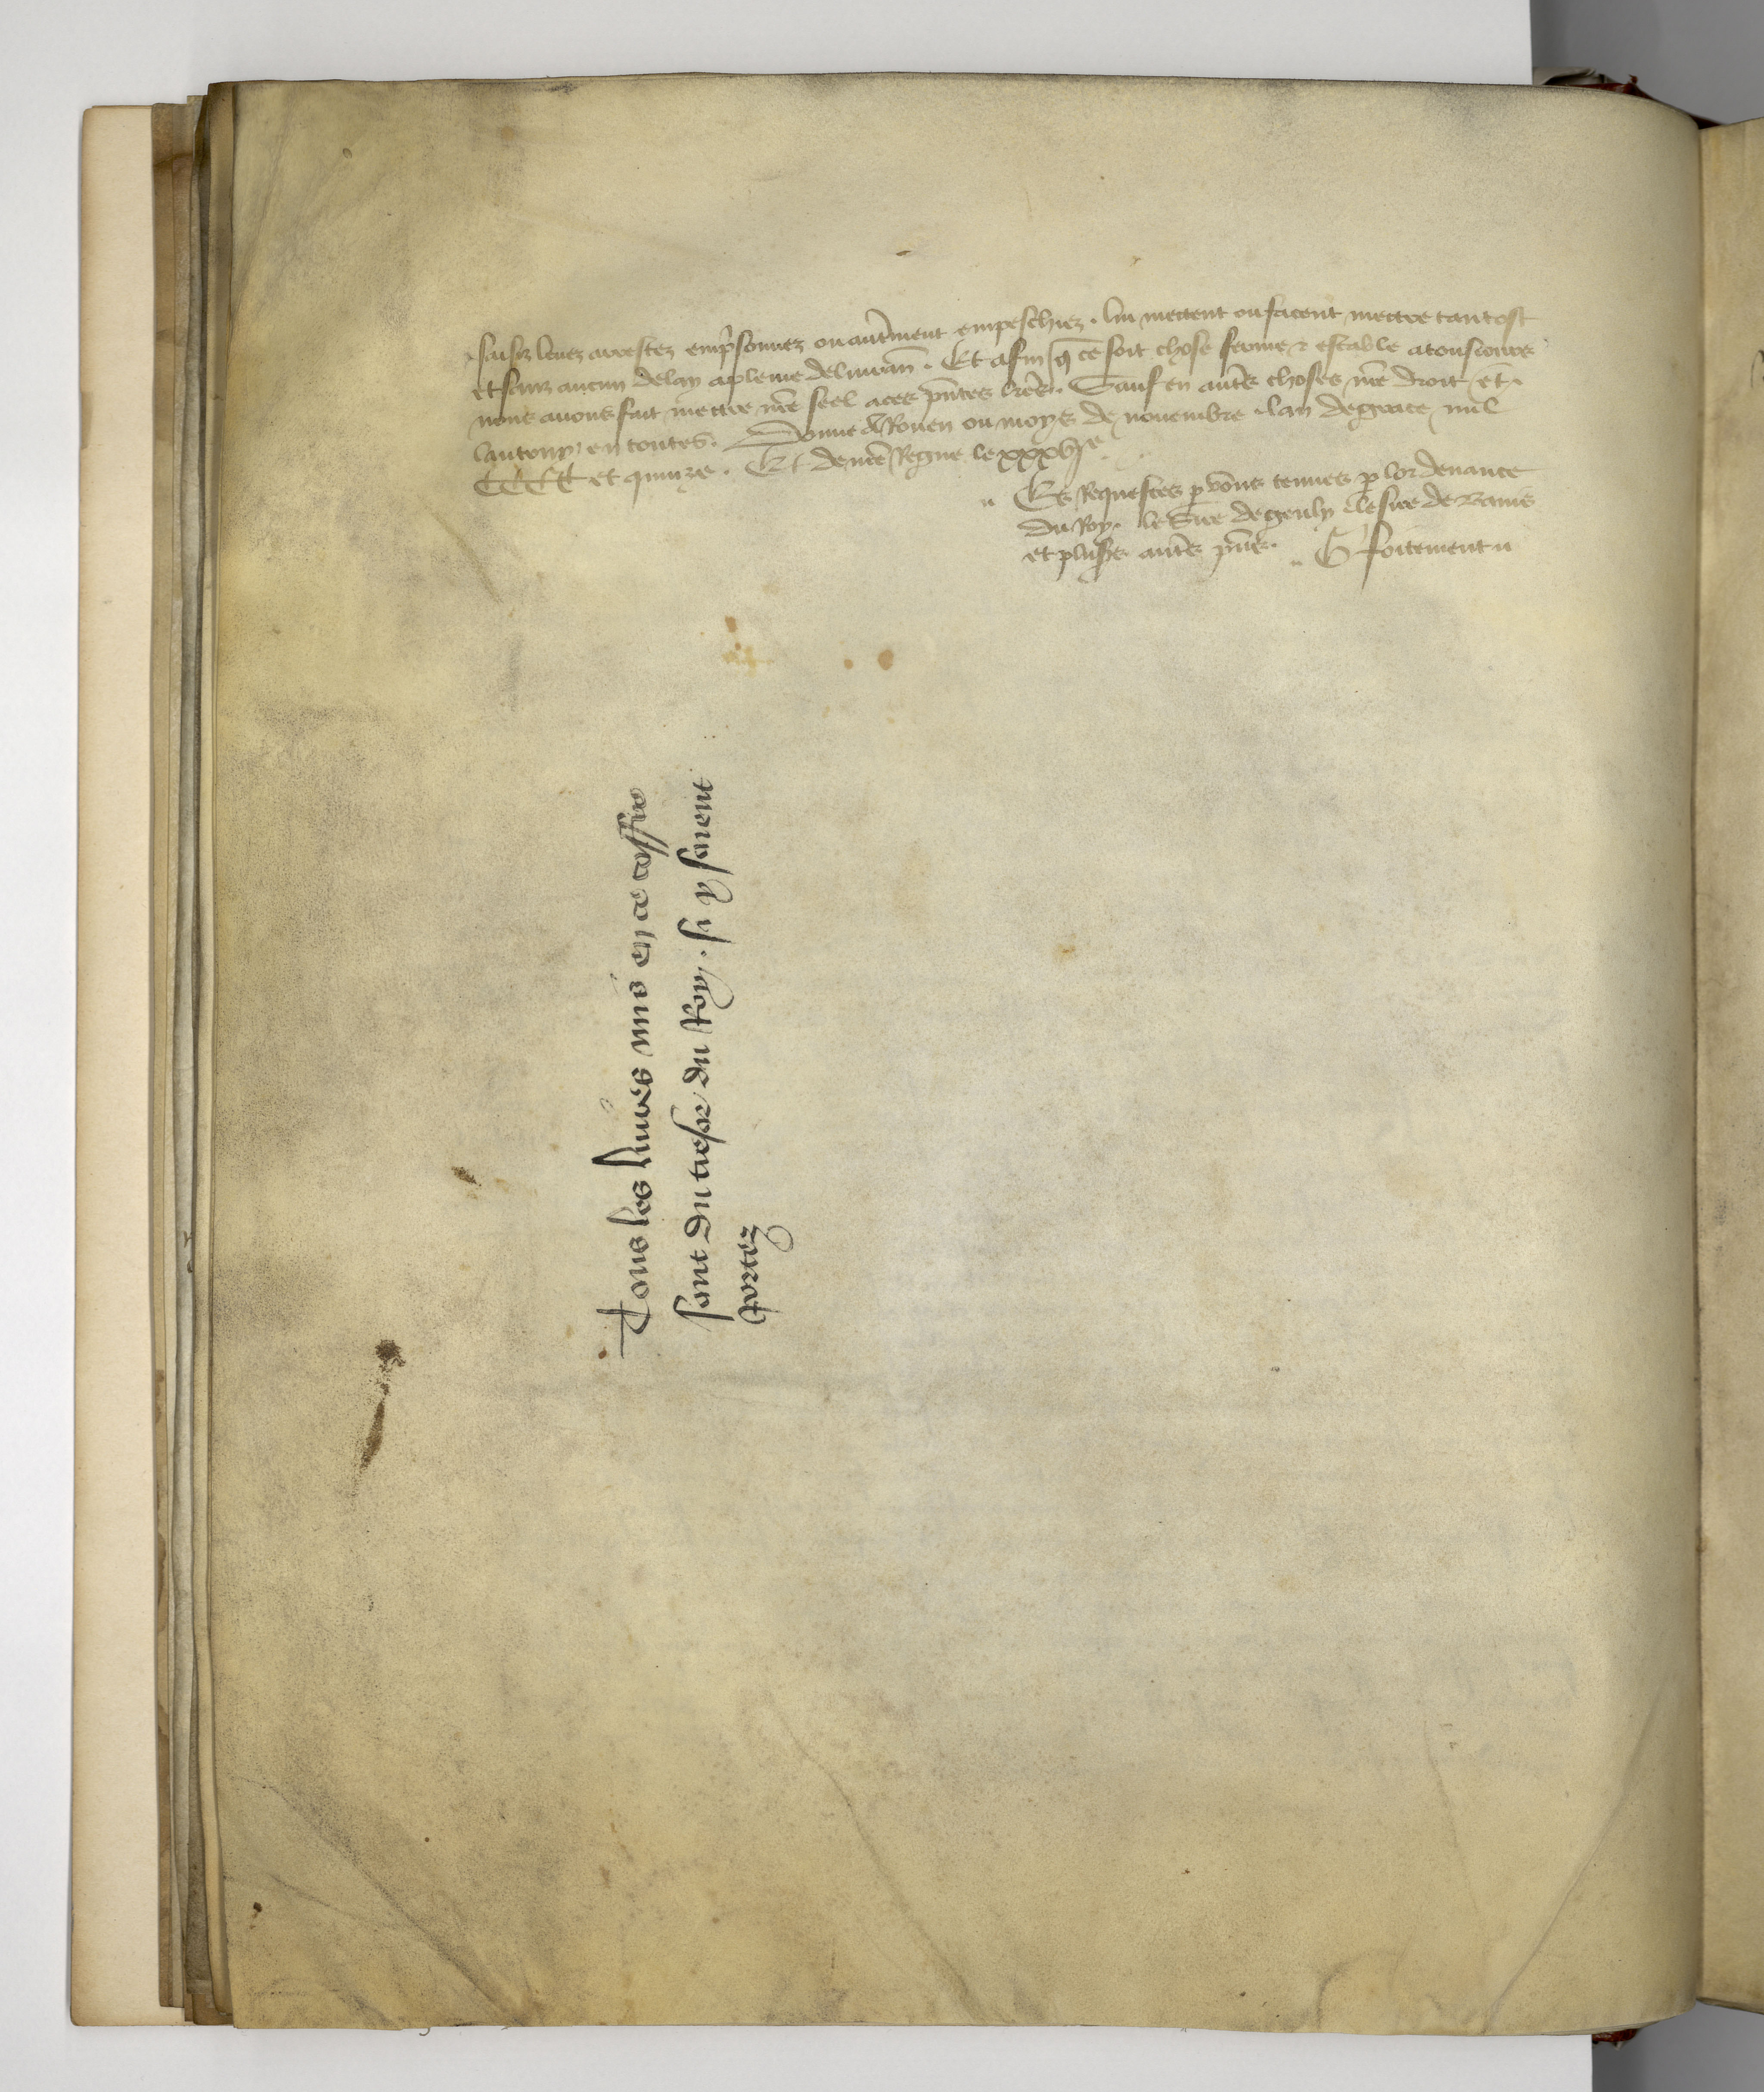 saisiz levez arrestez emprisonnez ou autrement empeschiez . lui mettent ou facent mettre tantost
et sanz aucun delay a pleine delivran̄ . Et afin q̄ ce soit chose ferme & estable a tousiours
nous avons fait mettre nr̄e seel a ces pn̄tes lr̄es . Sauf en autr̄s choses nr̄e droit et
lautruy en toutes . Donne a Rouen ou moys de novembre lan de grace mil
CCCC et quinze . Et de nr̄e Regne le xxxvjᵉ .
Es Requestes p̱ vous tenues p̱ lordenance
du Roy . le Sire de
et plus̄s autr̄s pn̄s . G fortement
Tous les livres mis en ce coffre
sont du tresor du Roy . si y soient
portez